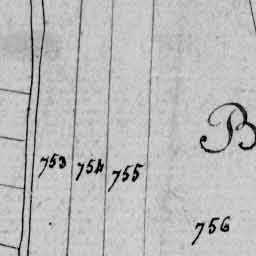 B
753 754 755
756